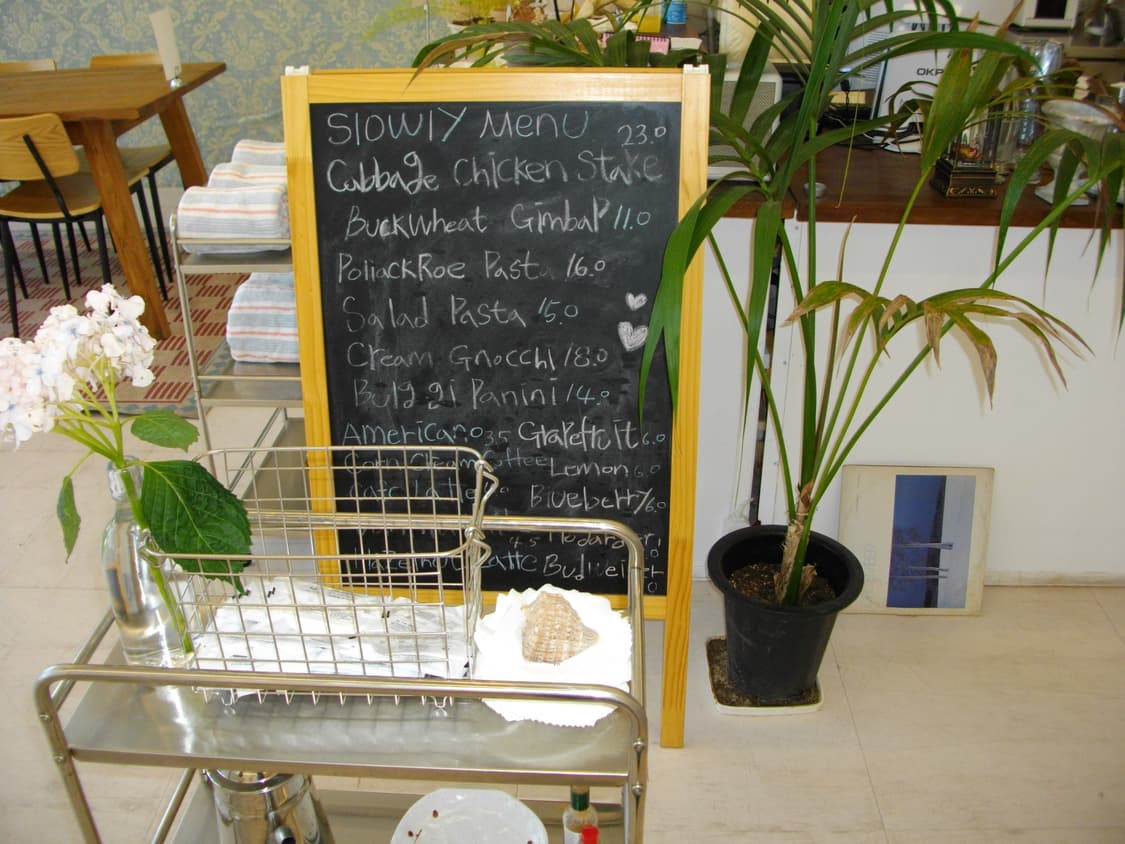 SLOWLY MENU 23.0
Cabbage Chicken Stake
Buckwheat Gimbap 11.0
PollackRoe Pasta 16.0
Salad Pasta 15.0
Cream Gnocchi 18.0
Bulg gi Panini 14.0
Americano 3.5 Grapefruit 6.0
Corn Cream Coffee Lemon 6.0
Cafe Latte Blueberry 6.0
4.5
Hazelnut Latte Budweiser
OKP